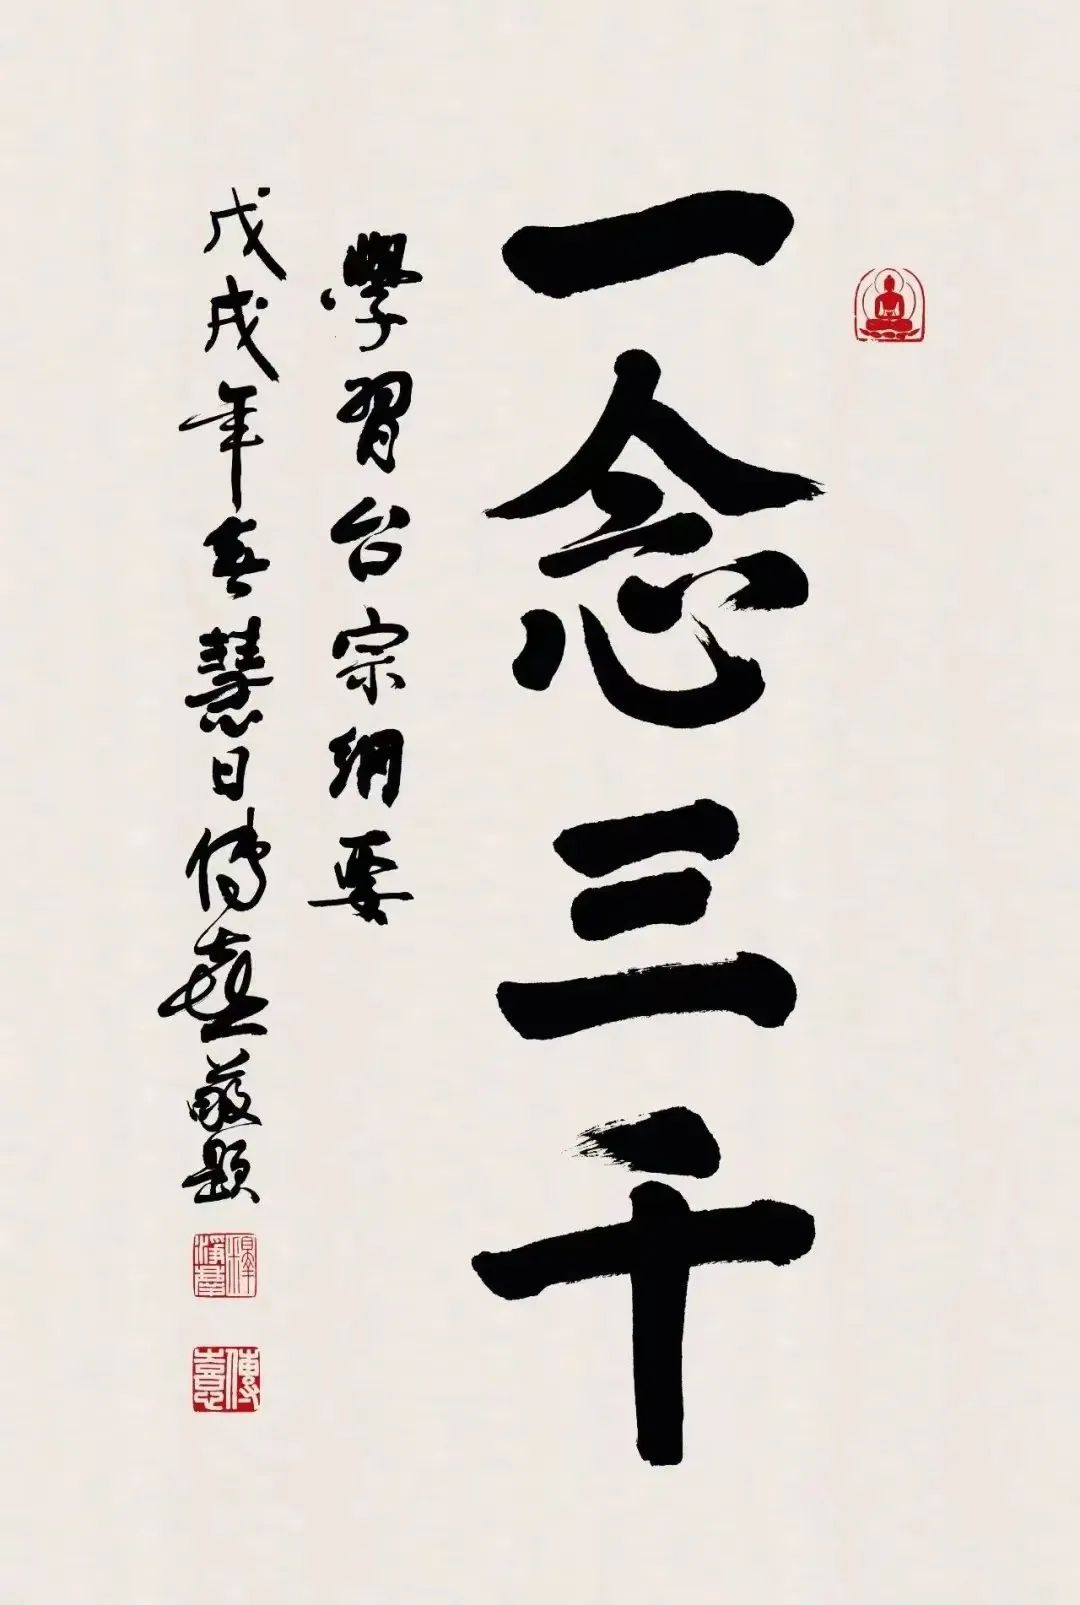 一念三千
學習台宗綱要
戊戌年春慧日傳憙敬題
傳憙